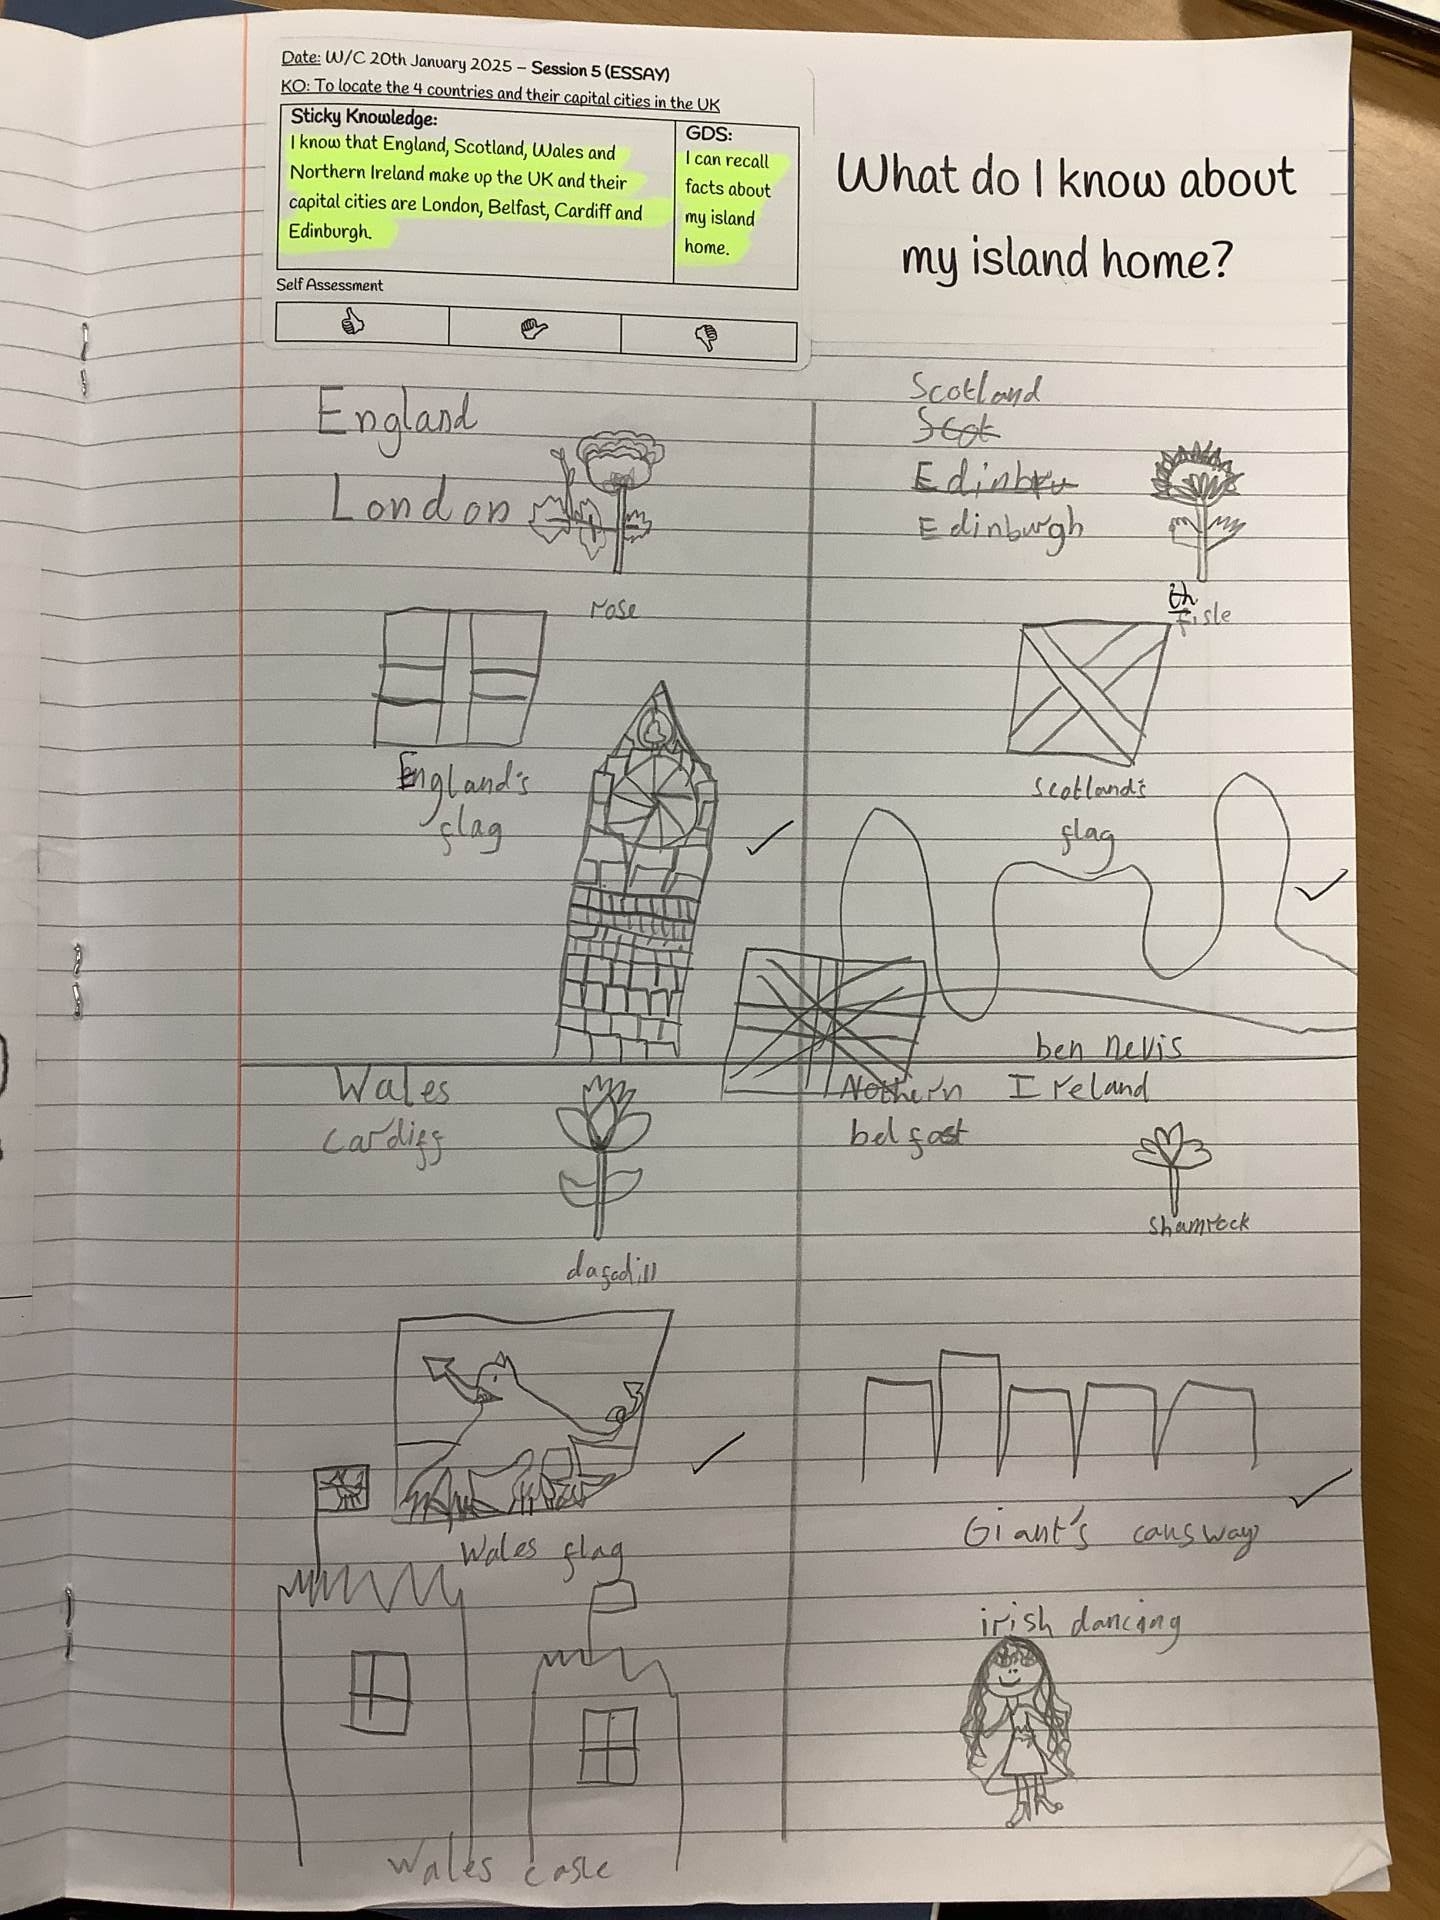 Date: W/C 20th January 2025 – Session 5 (ESSAY)
KO: To locate the 4 countries and their capital cities in the UK
Sticky Knowledge:
I know that England, Scotland, Wales and
Northern Ireland make up the UK and their
capital cities are London, Belfast, Cardiff and
Edinburgh.
GDS:
I can recall
facts about
my island
home.
Self Assessment
What do I know about
my island home?
England
London
rose
England's
flag
Scotland
Scot
Edinbru
Edinburgh
th
fisle
Scotland's
flag
ben nevis
Wales
cardiff
dafodill
Wales flag
Wales casle
Nothern Ireland
belfast
shamrock
Giant's causway
irish dancing